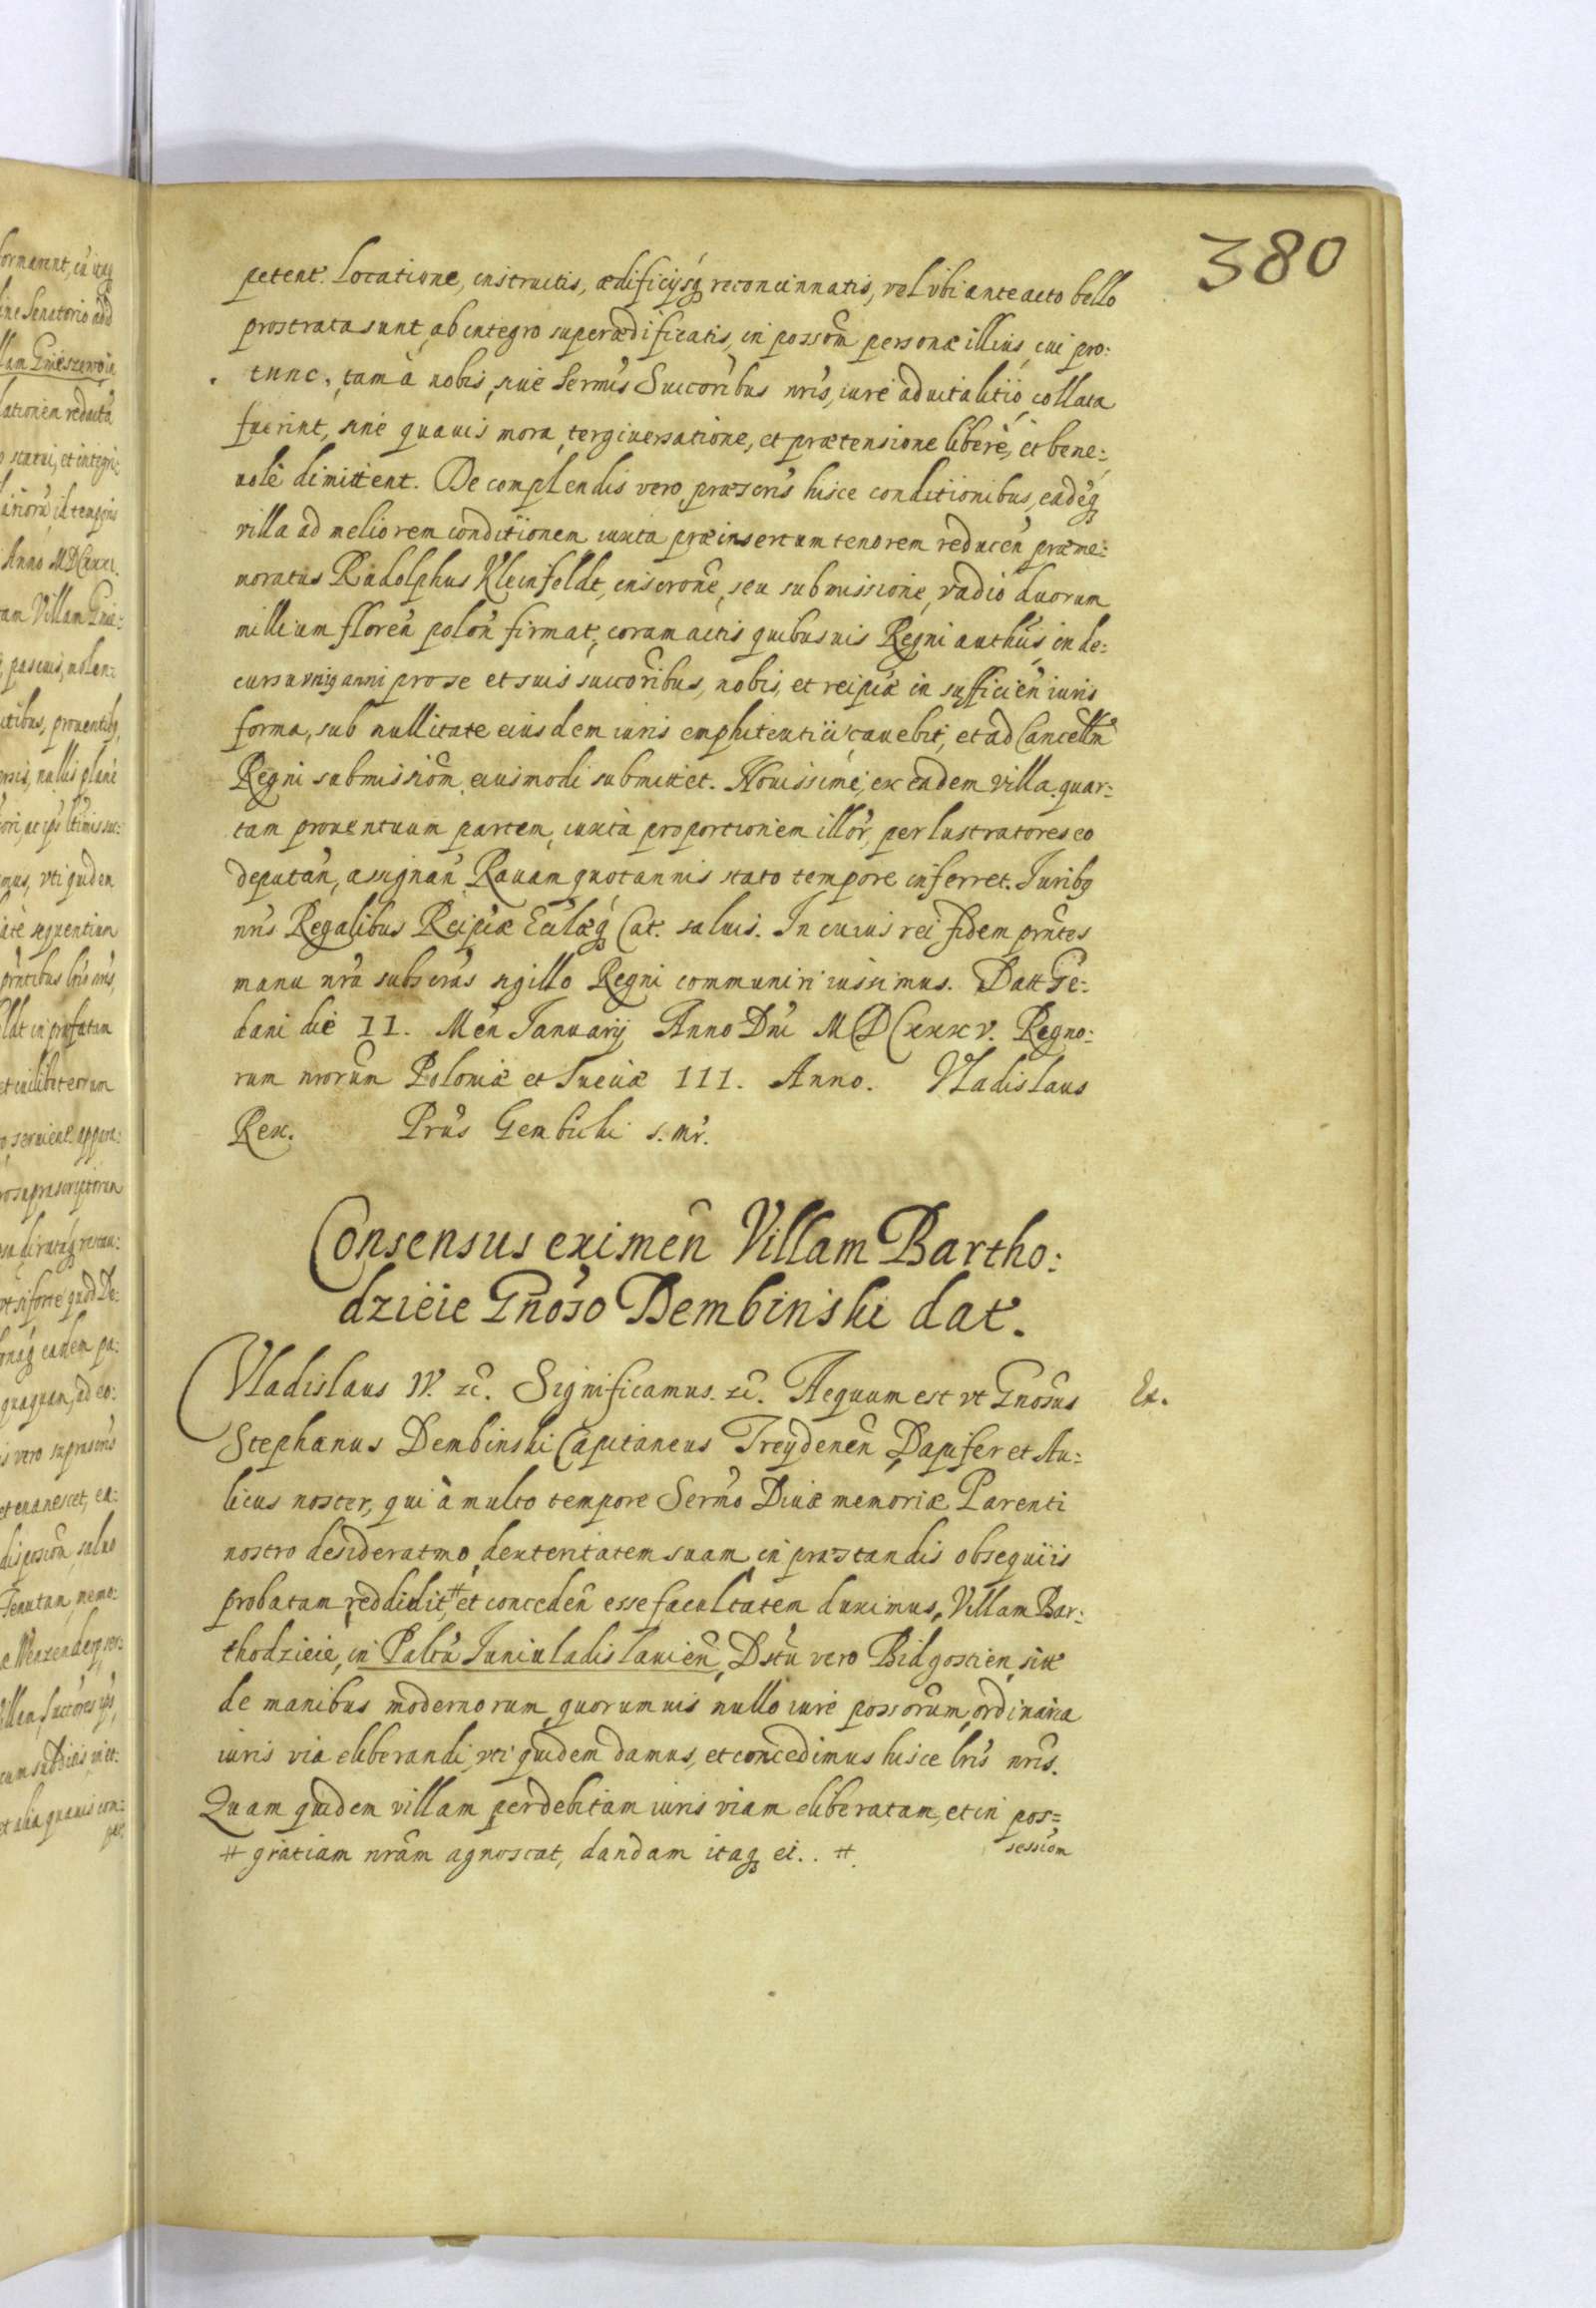 380
petent. locatione, instructis, ædificijsq́ reconcinnatis, vel vbi anteacto bello
prostrata sunt, ab integro superædificatis, in possom̃ personæ illius, cui pro:
tunc, tam à nobis, siue Sermis Succoribus nr̃is, iure aduitalitio collata
fuerint, sine quauis mora, tergiuersatione, et prætensione liberè, et bene:
uolè dimittent. De complendis vero præscris hisce conditionibus, eadéq
villa ad meliorem conditionem iuxta præinsertum tenorem reducen̄ præme:
moratus Rudolphus Kleinfeldt, inscrone, seu submissione, vadio duorum
millium floren̄ polon̄ firmat, coram actis quibusuis Regni authis in de:
cursu vniq anni pro se et suis succoribus, nobis, et reipcæ in sufficien̄ iuris
forma, sub nullitate eiusdem iuris emphiteutici cauebit, et ad Cancellm̃
Regni submissiom̃ eiusmodi submittet. Nouissime, ex eadem villa quar:
tam prouentuum partem, iuxta proportionem illor̃, per lustratores eo
deputan̄, assignan̄ Rauam quotannis stato tempore inferret. Juribq
nr̃is Regalibus Reipcæ Eclæq́ Cat. saluis. In cuius rei fidem prn̄tes
manu nr̃a subscras sigillo Regni communiri iussimus. Datt Ge:
dani die II. Men̄ Januarij Anno Dni MDCxxxv. Regno:
rum nrorum Poloniæ et Sueciæ III. Anno. Vladislaus
Rex. Prus Gembicki s. mr.
Consensus eximen̄ Villam Bartho:
dzieie Gnoso Dembinski dat.
Vladislaus IV. zc̃. Significamus. zc̃. Aequum est vt Gnosus
Ex.
Stephanus Dembinski Capitaneus Treydenen̄ Dapifer et Au:
licus noster, qui à multo tempore Sermo Diuæ memoriæ Parenti
nostro desideratmo, dexteritatem suam in præstandis obsequiis
probatam reddidit, # et conceden̄ esse facultatem duximus, Villam Bar:
thodzieie, in Paltu Juniuladislauien̄, Dstu vero Bidgostien̄ sitt
de manibus modernorum quorumuis nullo iure possorum, ordinaria
iuris via eliberandi, vti quidem damus, et concedimus hisce lris nris.
Quam quidem villam per debitam iuris viam eliberatam, et in pos=
session
# gratiam nram agnoscat, dandam itaq ei. . #.